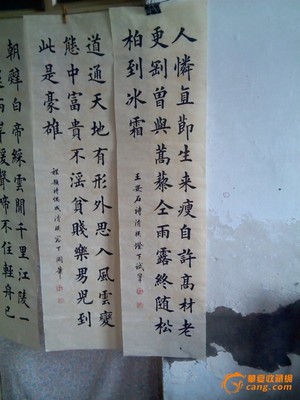 人憐直節生来瘦自許高材老
更剛曾與蒿藜仝雨露終随松
柏到冰霜
王安石詩清祺燈下試筆
道通天地有形外思入風雲變
態中富貴不淫貧賤樂男兒到
此是豪雄
程顥詩偶成清祺窓下閑筆
朝辤白帝綵雲間千里江陵一
岸猨聲啼不住輕舟已
華夏收藏網
cang.com